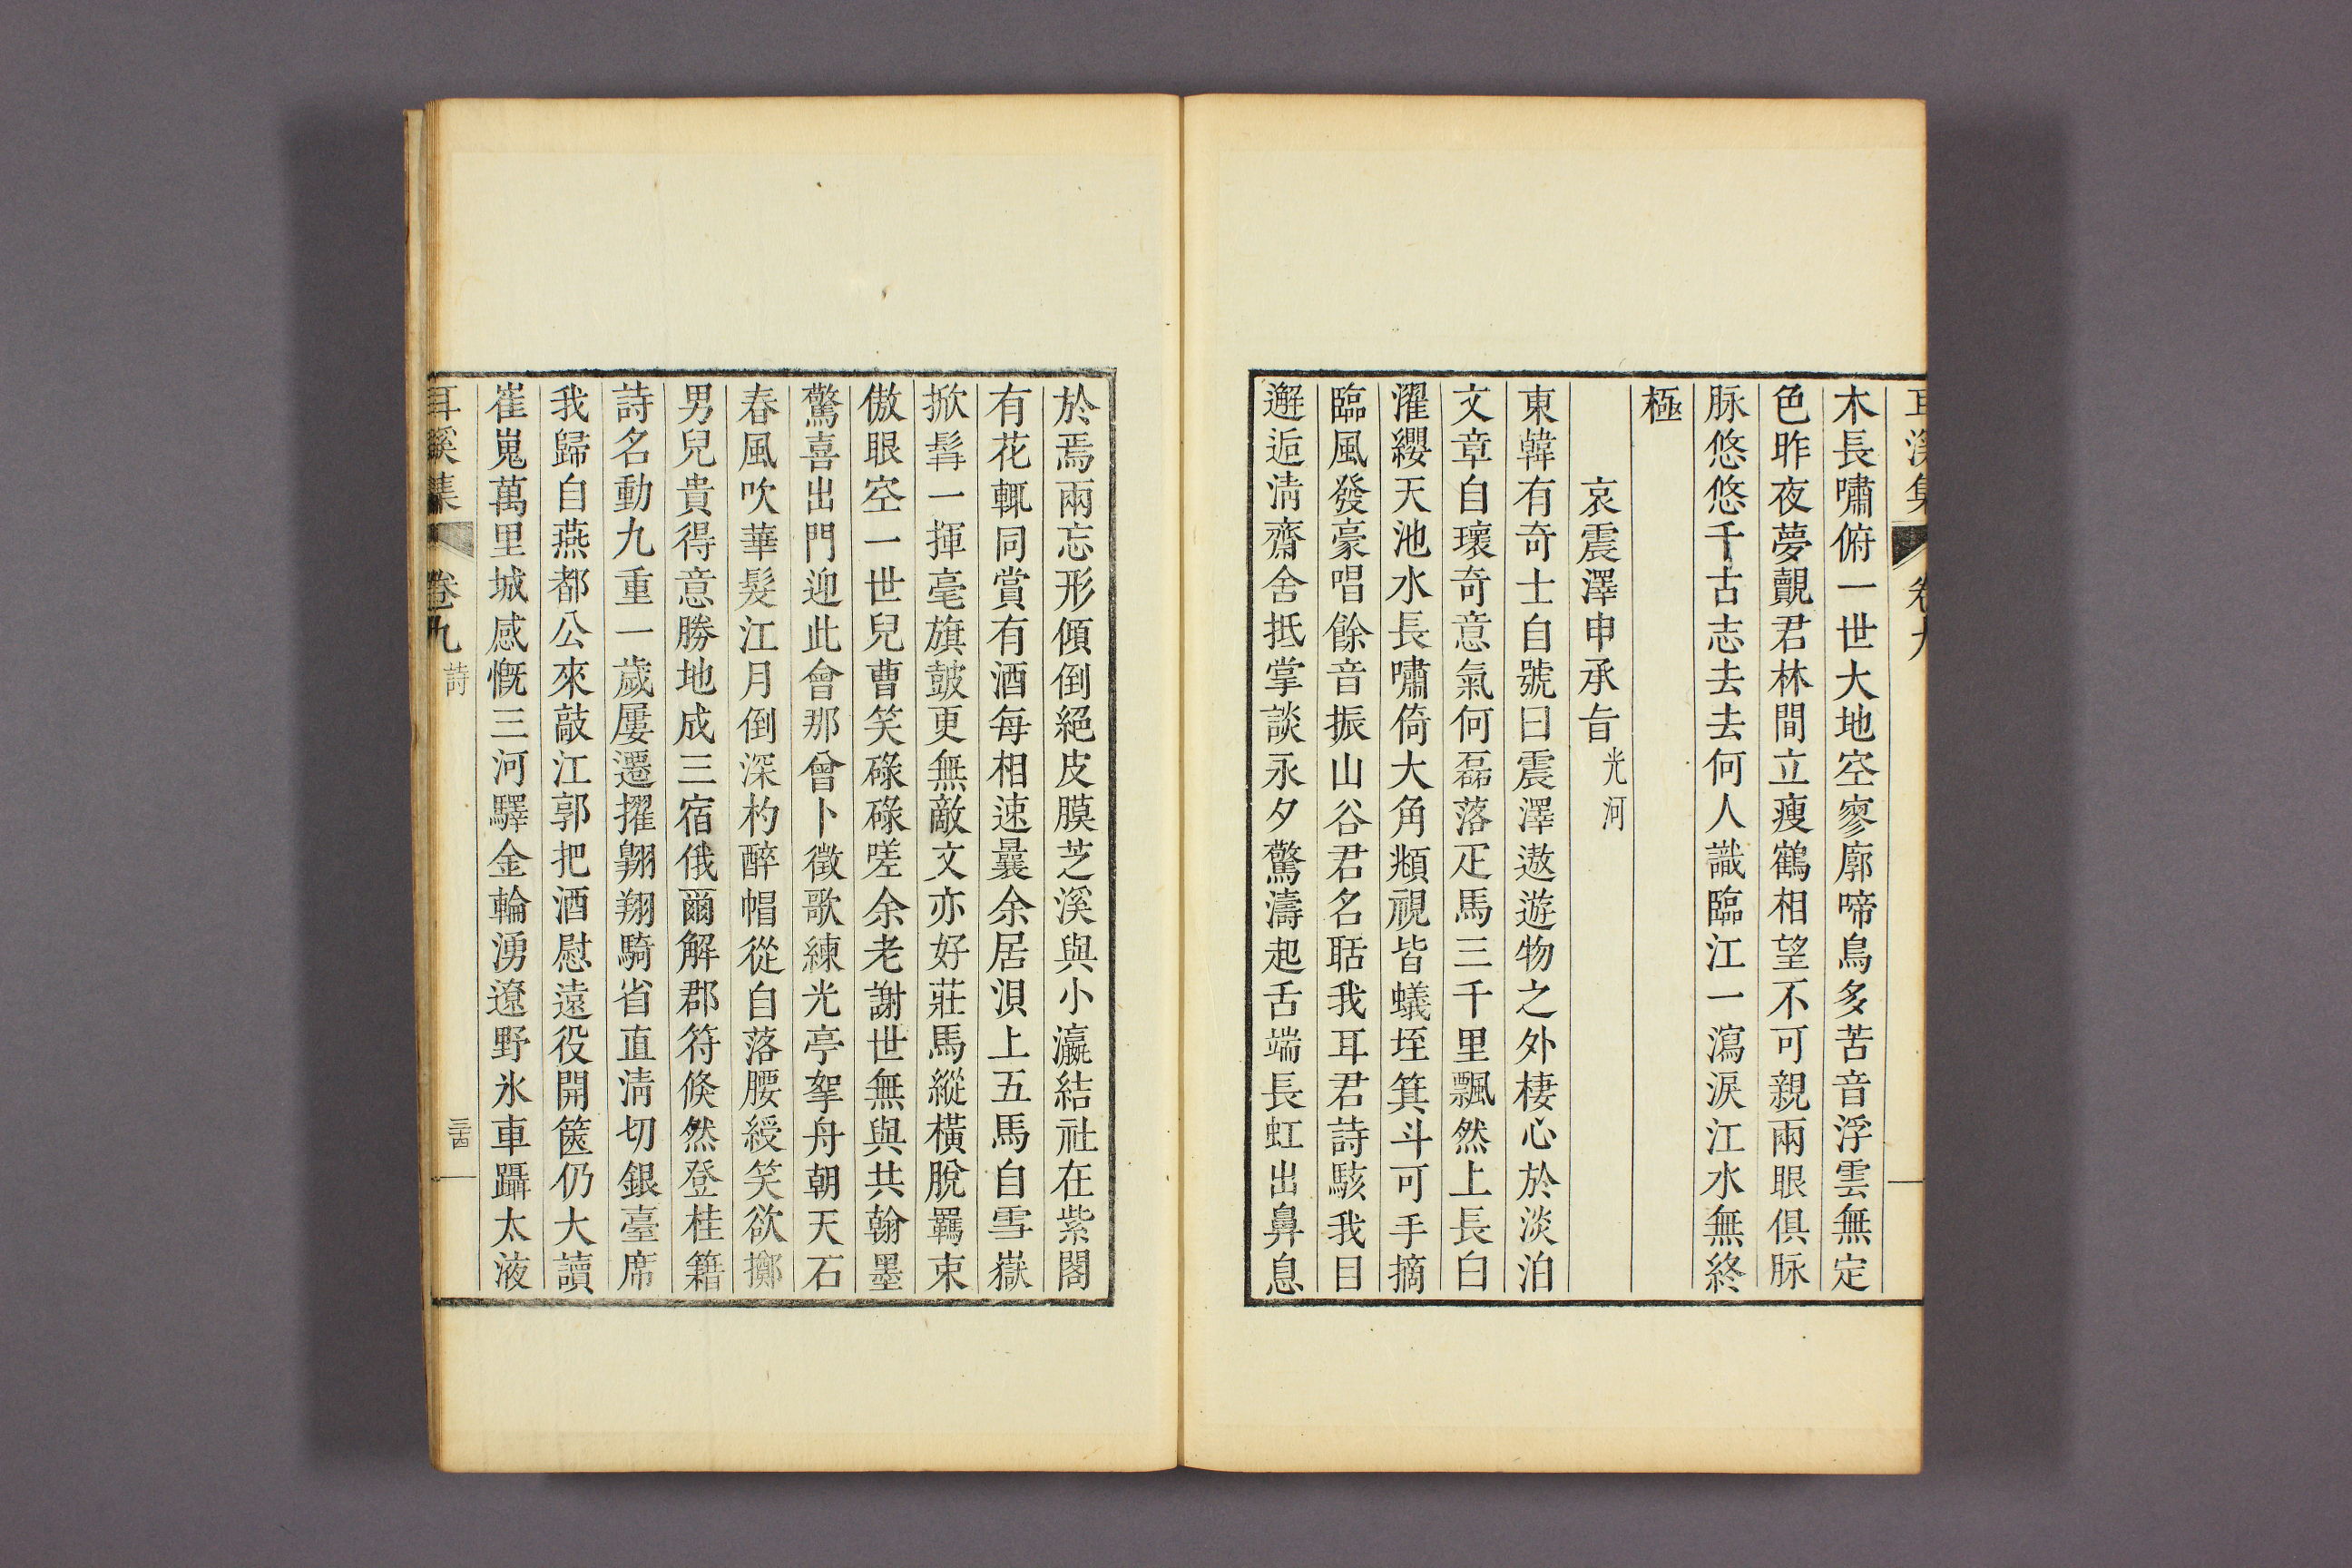 耳溪集 卷九
木長嘯俯一世大地空寥廓啼鳥多苦音浮雲無定
色昨夜夢覿君林間立瘦鶴相望不可親兩眼俱脉
脉悠悠千古志去去何人識臨江一瀉淚江水無終
極
哀震澤申承旨光河
東韓有奇士自號曰震澤遨遊物之外棲心於淡泊
文章自瓌奇意氣何磊落疋馬三千里飄然上長白
濯纓天池水長嘯倚大角頫視皆蟻垤箕斗可手摘
臨風發豪唱餘音振山谷君名聒我耳君詩駭我目
邂逅淸齋舍抵掌談永夕驚濤起舌端長虹出鼻息
於焉兩忘形傾倒絕皮膜芝溪與小瀛結社在紫閣
有花輒同賞有酒每相速曩余居浿上五馬自雪嶽
掀髥一揮毫旗皷更無敵文亦好莊馬縱橫脫羈束
傲眼空一世兒曹笑碌碌嗟余老謝世無與共翰墨
驚喜出門迎此會那曾卜徵歌練光亭拏舟朝天石
春風吹華髮江月倒深杓醉帽從自落腰綬笑欲擲
男兒貴得意勝地成三宿俄爾解郡符倐然登桂籍
詩名動九重一歲屢遷擢翺翔騎省直淸切銀臺席
我歸自燕都公來敲江郭把酒慰遠役開篋仍大讀
崔嵬萬里城感慨三河驛金輪湧遼野氷車躡太液
耳溪集 卷九 詩 三十四